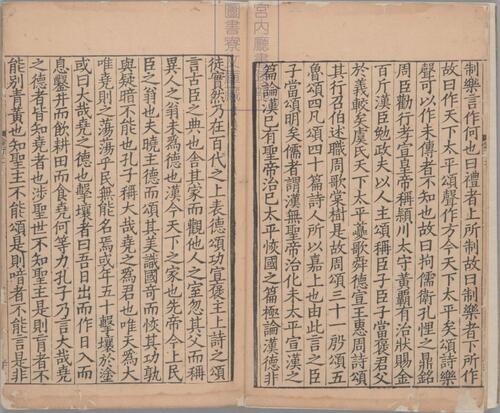 宮内廳
圖書寮
制樂言作何也曰禮者上所制故曰制樂者下所作
故曰作天下太平頌聲作方今天下太平矣頌詩樂
聲可以作未傳者不知也故曰拘儒衛孔悝之鼎銘
周臣勸行孝宣皇帝稱潁川太守黃霸有治狀賜金
百斤漢臣勉政夫以人主頌稱臣子臣子當褒君父
於義較矣虞氏天下太平夔歌舜德宣王惠周詩頌
其行召伯述職周歌棠樹是故周頌三十一殷頌五
魯頌四凡頌四十篇詩人所以嘉上也由此言之臣
子當頌明矣儒者謂漢無聖帝治化未太平宣漢之
篇論漢已有聖帝治已太平恢國之篇極論漢德非
徒實然乃在百代之上表德頌功宣褒主上詩之頌
言右臣之典也舍其家而觀他人之室忽其父而稱
異人之翁未為德也漢今天下之家也先帝今上民
臣之翁也夫曉主德而頌其美識國奇而恢其功孰
與疑暗不能也孔子稱大哉堯之為君也唯天為大
唯堯則之蕩蕩乎民無能名焉或年五十擊壤於塗
或曰大哉堯之德也擊壤者曰吾日出而作日入而
息鑿井而飲耕田而食堯何等力孔子乃言大哉堯
之德者皆知堯者也涉聖世不知聖主是則盲者不
能別青黃也知聖主不能頌是則喑者不能言是非